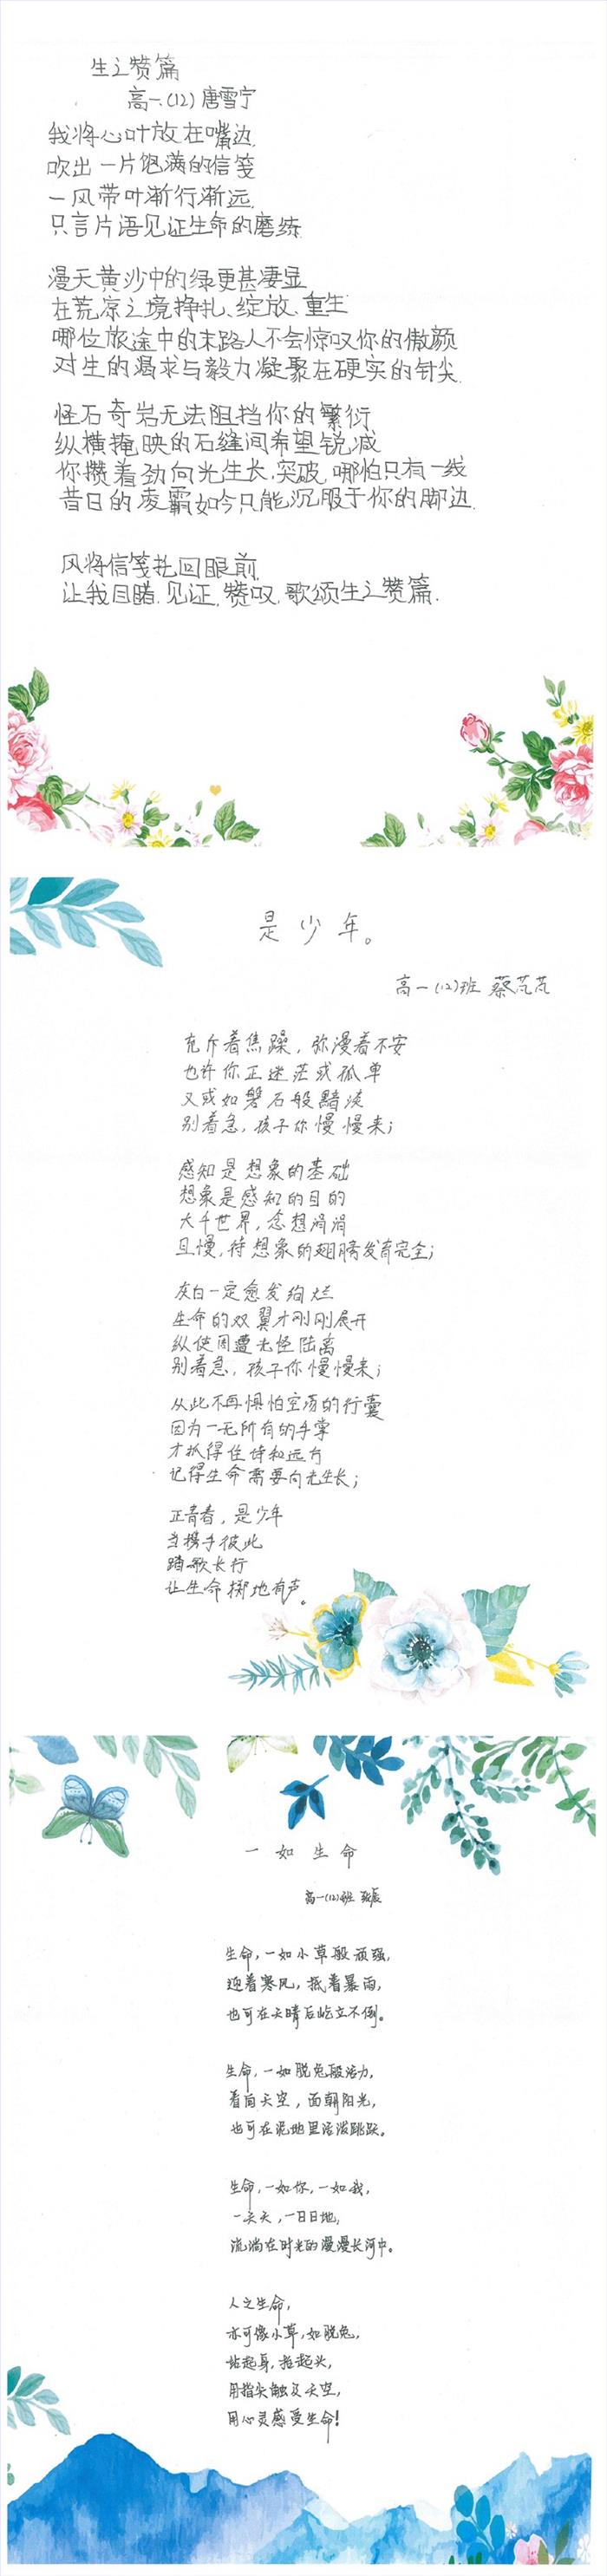 生之赞篇
高一.(12) 唐雪宁
我将心叶放在嘴边.
吹出一片饱满的信笺
一风带叶渐行渐远.
只言片语见证生命的磨练.
漫天黄沙中的绿更甚凄显
在荒凉之境挣扎、绽放、重生
哪位旅途中的末路人不会惊叹你的傲颜
对生的渴求与毅力凝聚在硬实的针尖.
怪石奇岩无法阻挡你的繁衍
纵横掩映的石缝间希望锐减
你攒着劲向光生长.突破.哪怕只有一线
昔日的凌霸如今只能沉服于你的脚边.
风将信笺扎回眼前.
让我目睹.见证.赞叹.歌颂生之赞篇.
是少年。
高一(12)班 蔡芃芃
充斥着焦躁，弥漫着不安
也许你正迷茫或孤单
又或如磐石般黯淡
别着急，孩子你慢慢来；
感知是想象的基础
想象是感知的目的
大千世界，念想涓涓
且慢，待想象的翅膀发育完全；
灰白一定愈发绚烂
生命的双翼才刚刚展开
纵使周遭光怪陆离
别着急，孩子你慢慢来；
从此不再惧怕空荡的行囊
因为一无所有的手掌
才抓得住诗和远方
记得生命需要向光生长；
正青春，是少年
当携手彼此
踏歌长行
让生命掷地有声。
一如生命
高一(12)班 张辰
生命，一如小草般顽强，
迎着寒风，抵着暴雨，
也可在天晴后屹立不倒。
生命，一如脱兔般活力，
看向天空，面朝阳光，
也可在泥地里活泼跳跃。
生命，一如你，一如我，
一天天，一日日地，
流淌在时光的漫漫长河中。
人之生命，
亦可像小草，如脱兔，
站起身，抬起头，
用指尖触及天空，
用心灵感受生命！